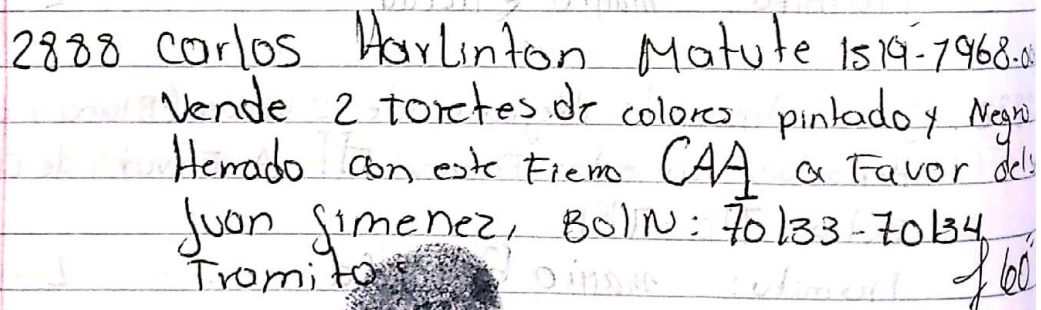 2888 Carlos Harlinton Matute 1519-1968.0
Vende 2 toretes de colores pintado y Negro
Herrado con este Fierro CAA a Favor del s
Juan Jimenez, BolN: 70133-70134
Tramito
L 60